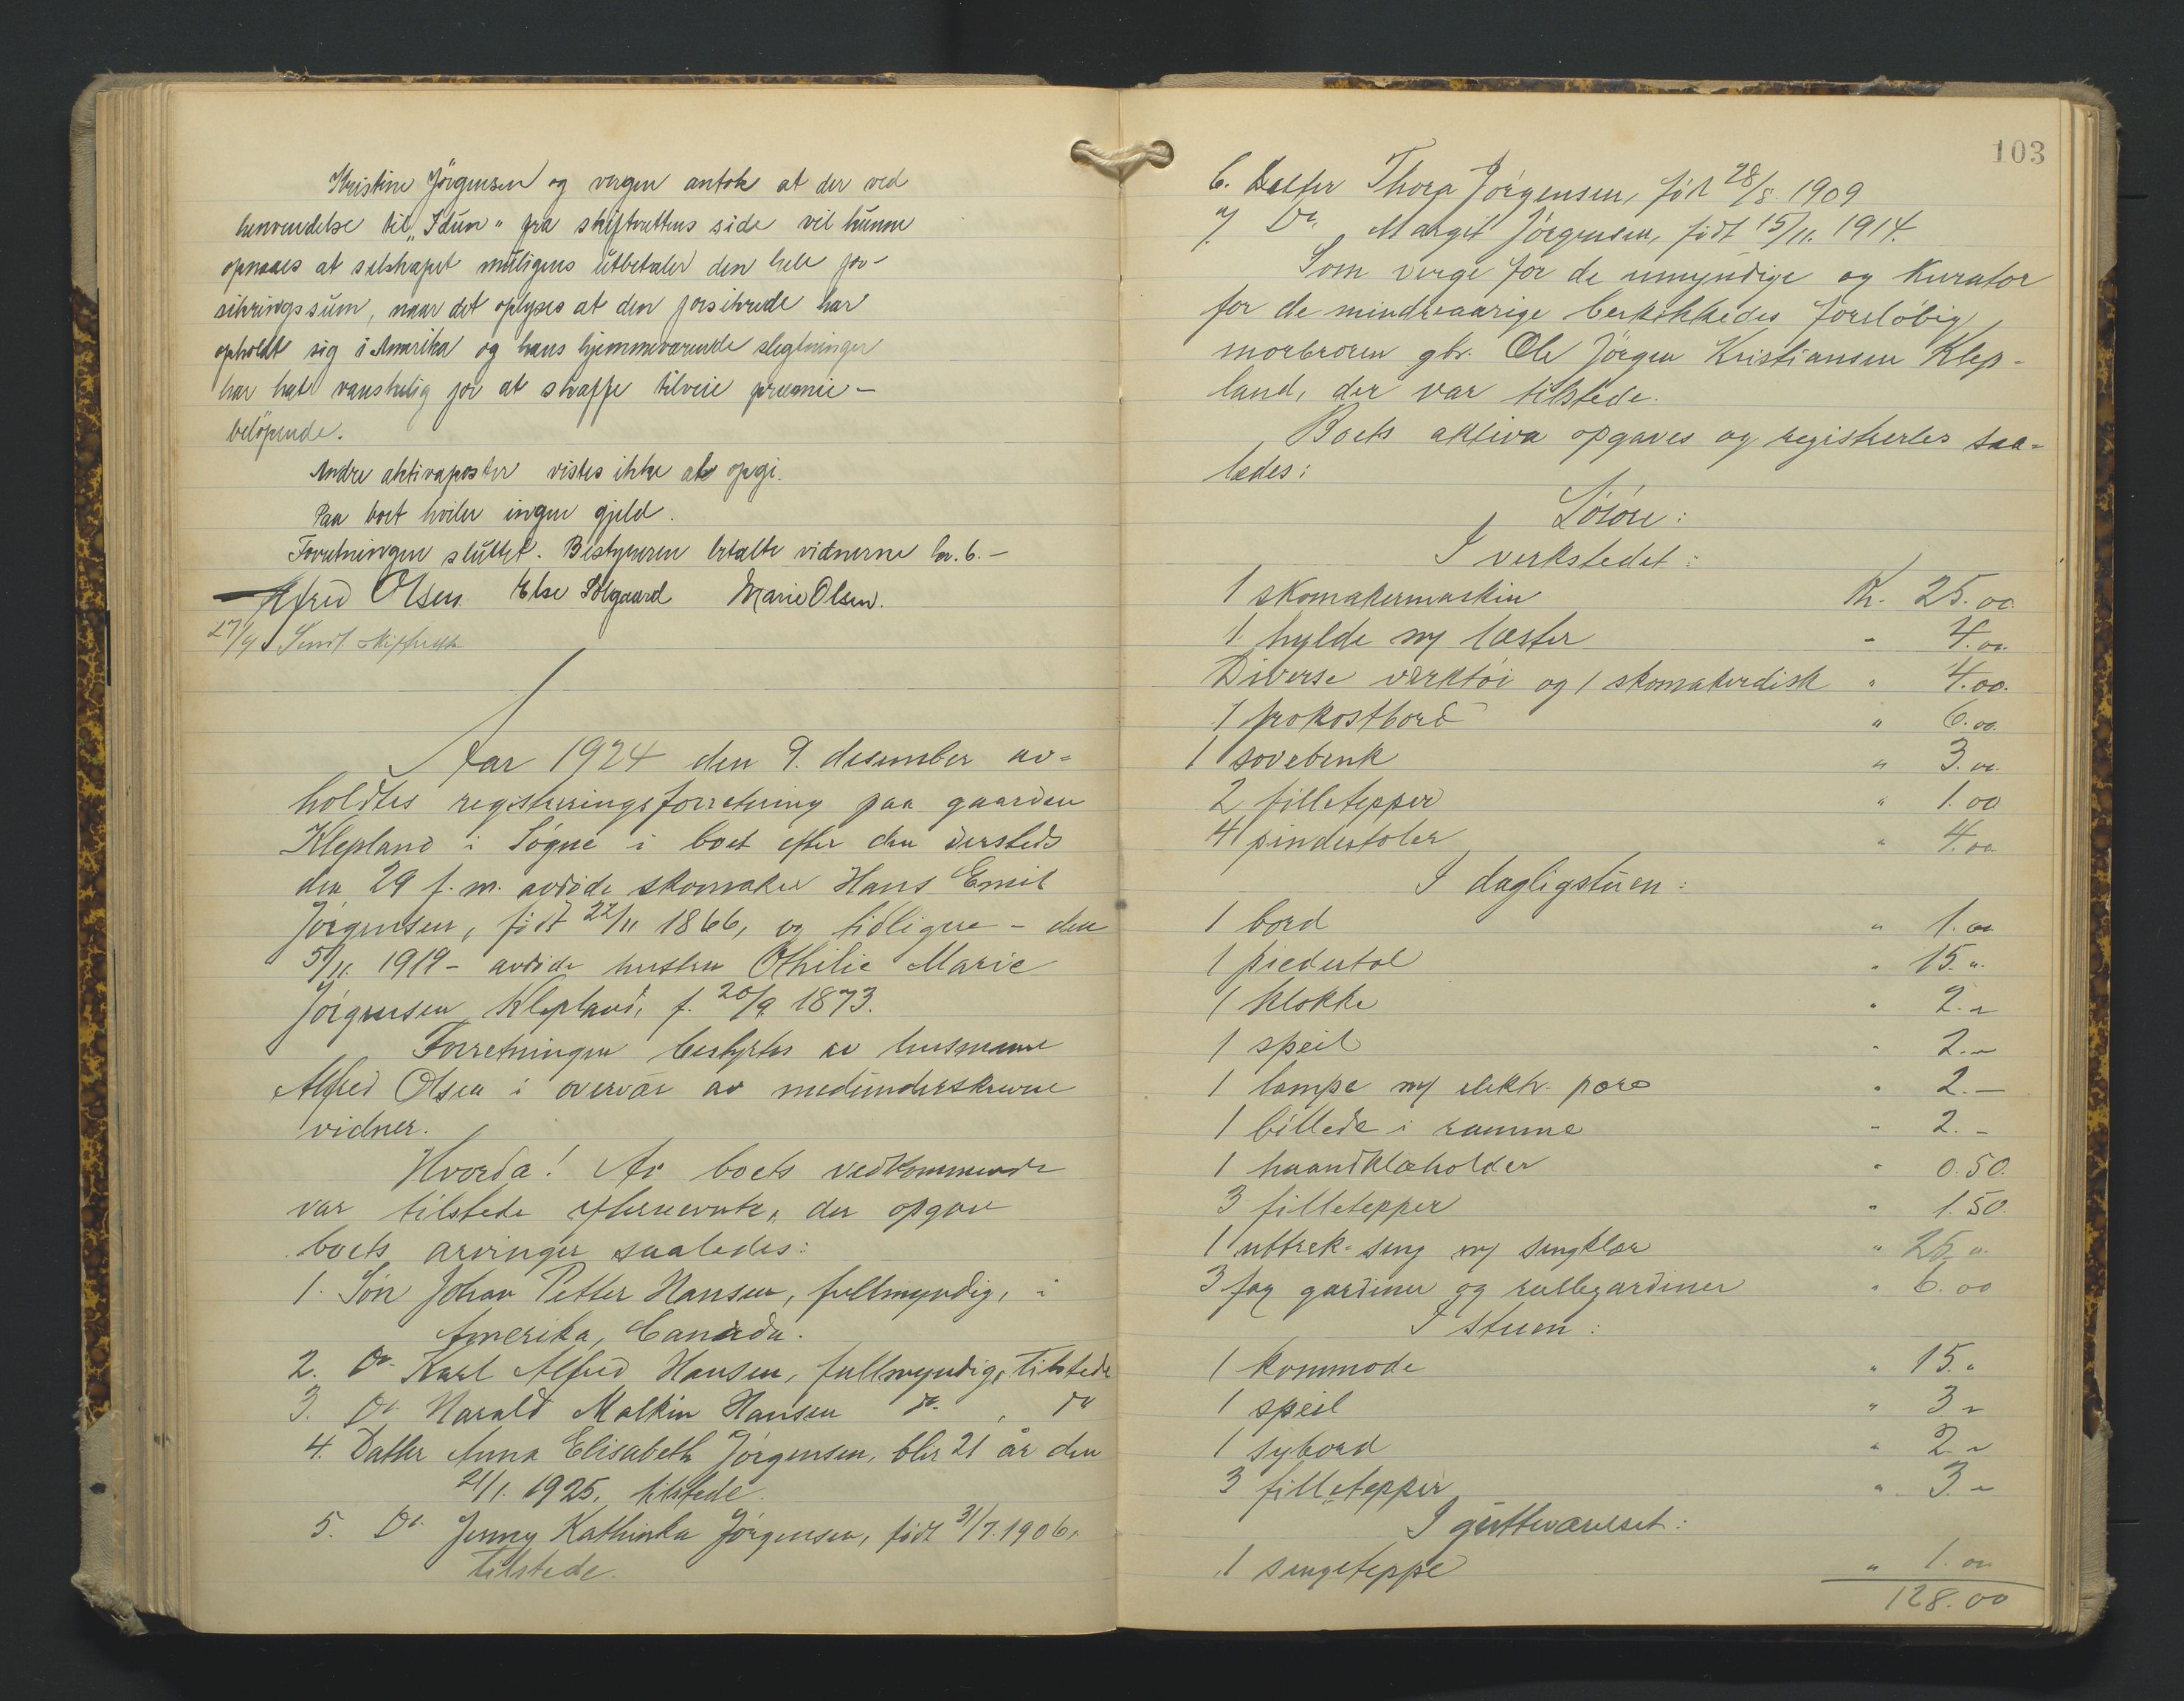 Kristine Jörgensen og vergen antok at der ved
henvendelse til „Idun" fra skifterettens side vil kunne
opnaaes at selskapet muligens utbetaler den hele for-
sikringssum, naar det oplyses at den forsikrede har
opholdt sig i Amerika og hans hjemmeværende slegtninger
har hat vanskelig for at skaffe tilveie præmie-
belöpende.
Andre aktivaposter vistes ikke at opgi.
Paa boet hviler ingen gjeld.
Forretningen sluttet. Bestyreren betalte vidnerne kr. 6.-
Alfred Olsen. Else Solgaard Marie Olsen.
27/9 Sendt skifterett
Aar 1924 den 9. desember av-
holdtes registreringsforretning paa gaarden
Klepland i Søgne i boet efter den dersteds
den 29 f.m. avdöde skomaker Hans Emil
Jörgensen, födt 22/11 1866, og tidligere - den
5/11. 1919 - avdöde hustru Othilie Marie
Jörgensen Klepland, f. 20/9 1873.
Forretningen bestyrtes av lensmann
Alfred Olsen i overvær av medunderskrevne
vidner.
Hvorda! Av boets vedkommende
var tilstede efternevnte, der opgav
boets arvinger saaledes:
1. Sön Johan Petter Hansen, fullmyndig, i
Amerika, Canada.
2. Do Karl Alfred Hansen, fullmyndig, tilstede
3. Do Harald Malkin Hansen do. , do
4. Datter Anna Elisabeth Jörgensen, blir 21 år den
21/1. 1925, tilstede.
5. Do Jenny Kathinka Jörgensen, födt 31/7. 1906,
tilstede.
103
6. Datter Thora Jörgensen, född 28/8. 1909
7. Do. Margit Jörgensen, födt 15/11. 1914.
Som verge for de umyndige og kurator
for de mindreaarige beskikkedes foreløbig
morbroren gbr. Ole Jörgen Kristiansen Klep-
land, der var tilstede.
Boets aktiva opgaves og registrertes saa-
ledes:
Lösöre:
I verkstedet:
1 skomakermaskin Kr. 25.00
1 hylde m/ læster - 4.00
Diverse verktöi og 1 skomakerdisk " 4.00.
1 frokostbord " 6.00.
1 sovebenk " 3.00.
2 filletepper " 1.00
4 pindestoler " 4.00
I dagligstuen:
1 bord " 1.00
1 piedestal " 15.-
1 klokke " 2.-
1 speil " 2.-
1 lampe m/ elektr. pære " 2.-
1 billede i ramme " 2.-
1 haandklæholder " 0.50.
3 filletepper " 1.50.
1 uttrek-seng m/ sengklær " 25.-
3 fag gardiner og rullegardiner " 6.00
I stuen:
1 kommode " 15.-
1 speil " 3-
1 sybord " 2.-
3 filletepper " 3.-
I gutteværelset:
1 sengeteppe " 1.00
128.00